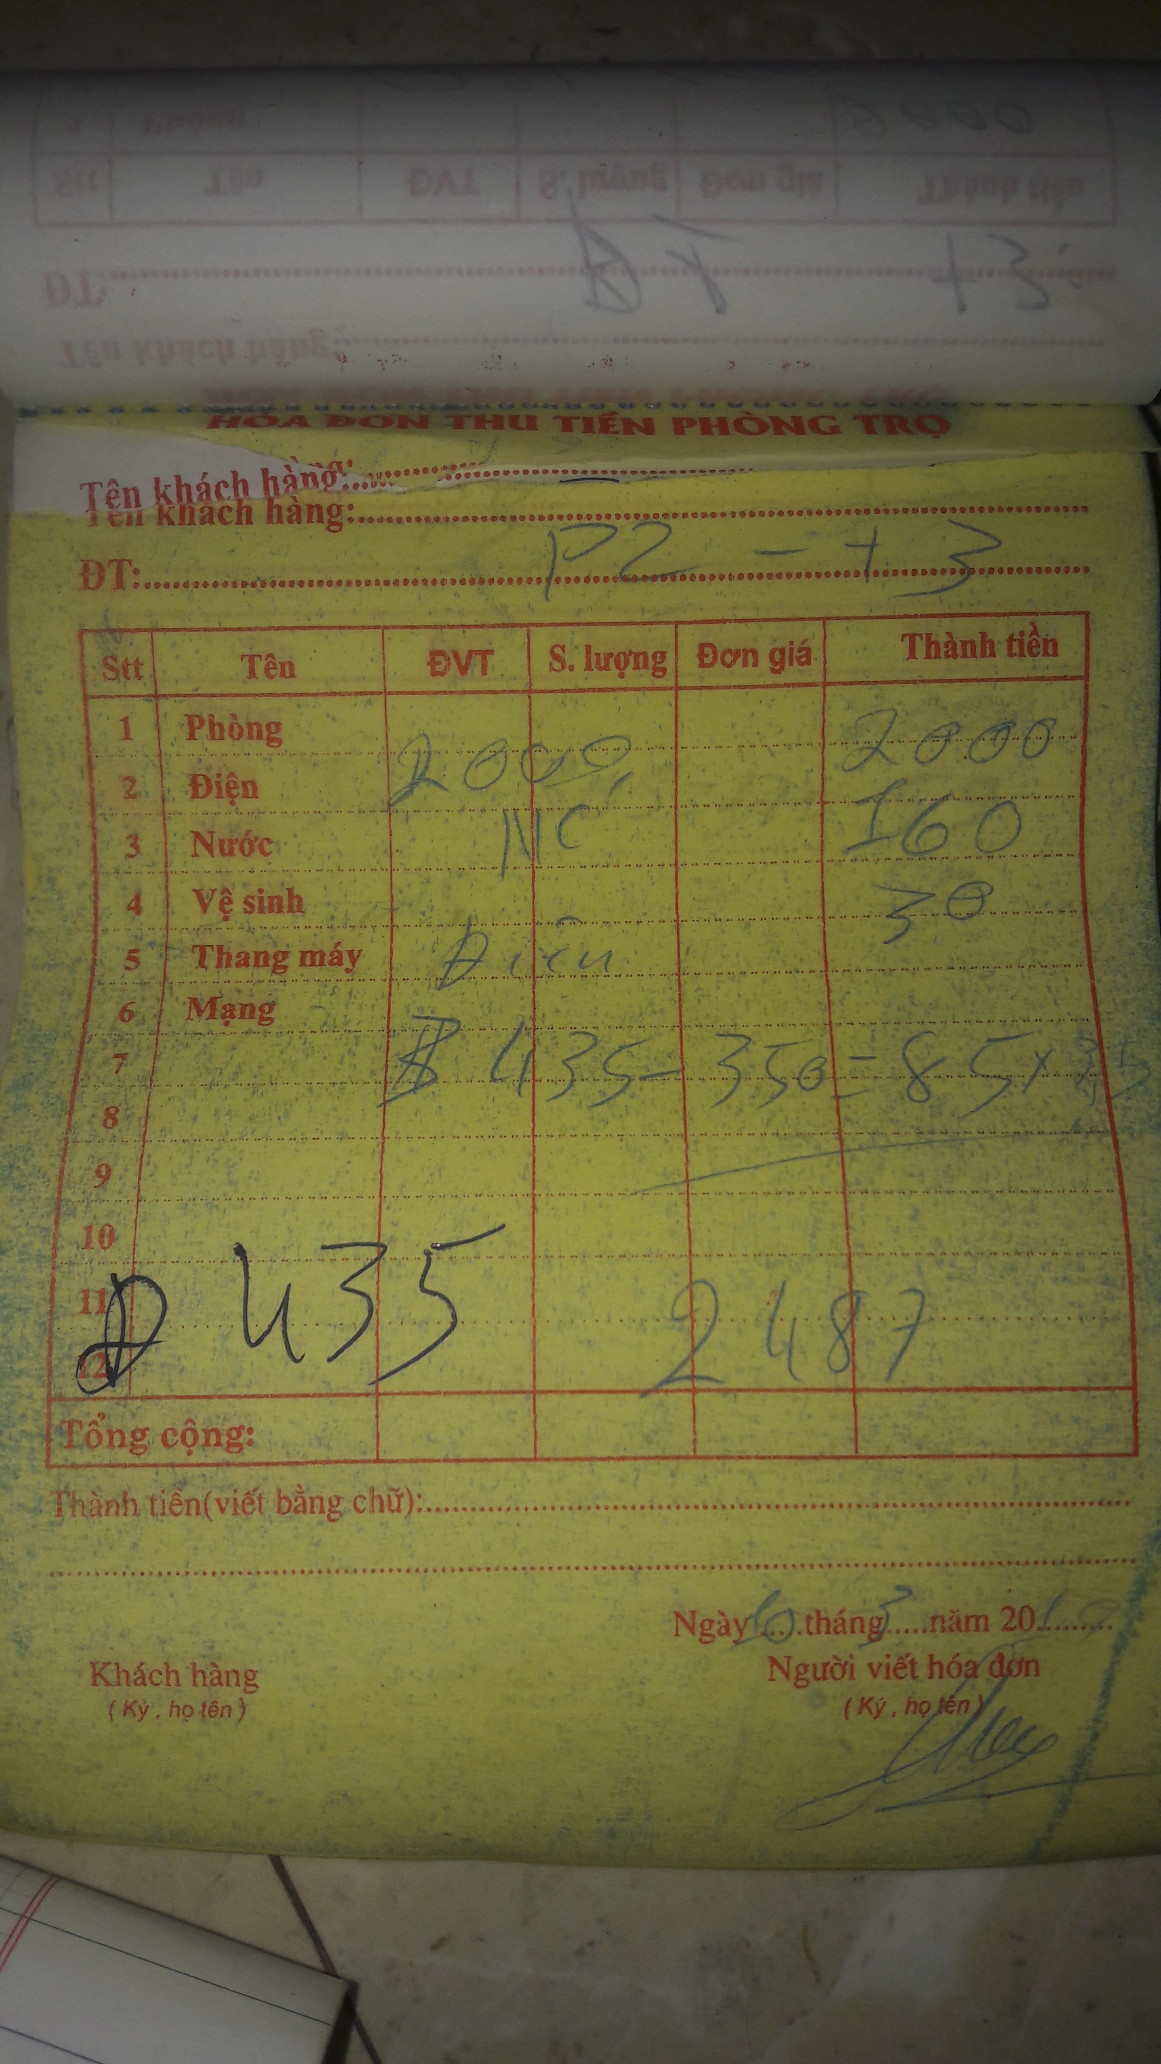 Thành tiền
Stt Tên ĐVT S. lượng Đơn giá Thành tiền
ĐT:
Tên khách hàng:
HÓA ĐƠN THU TIỀN PHÒNG TRỌ
Tên khách hàng:
Tên khách hàng:
ĐT: P2 - T3
Stt Tên ĐVT S. lượng Đơn giá Thành tiền
1 Phòng 2000 2000
2 Điện
3 Nước NC 160
4 Vệ sinh 30
5 Thang máy Điện
6 Mạng
7 435 - 350 = 85 x 3,5
8
9
10
11 Đ 435 2487
12
Tổng cộng:
Thành tiền(viết bằng chữ):
Ngày 10 tháng 3 năm 20
Khách hàng Người viết hóa đơn
( Ký , họ tên ) ( Ký , họ tên )